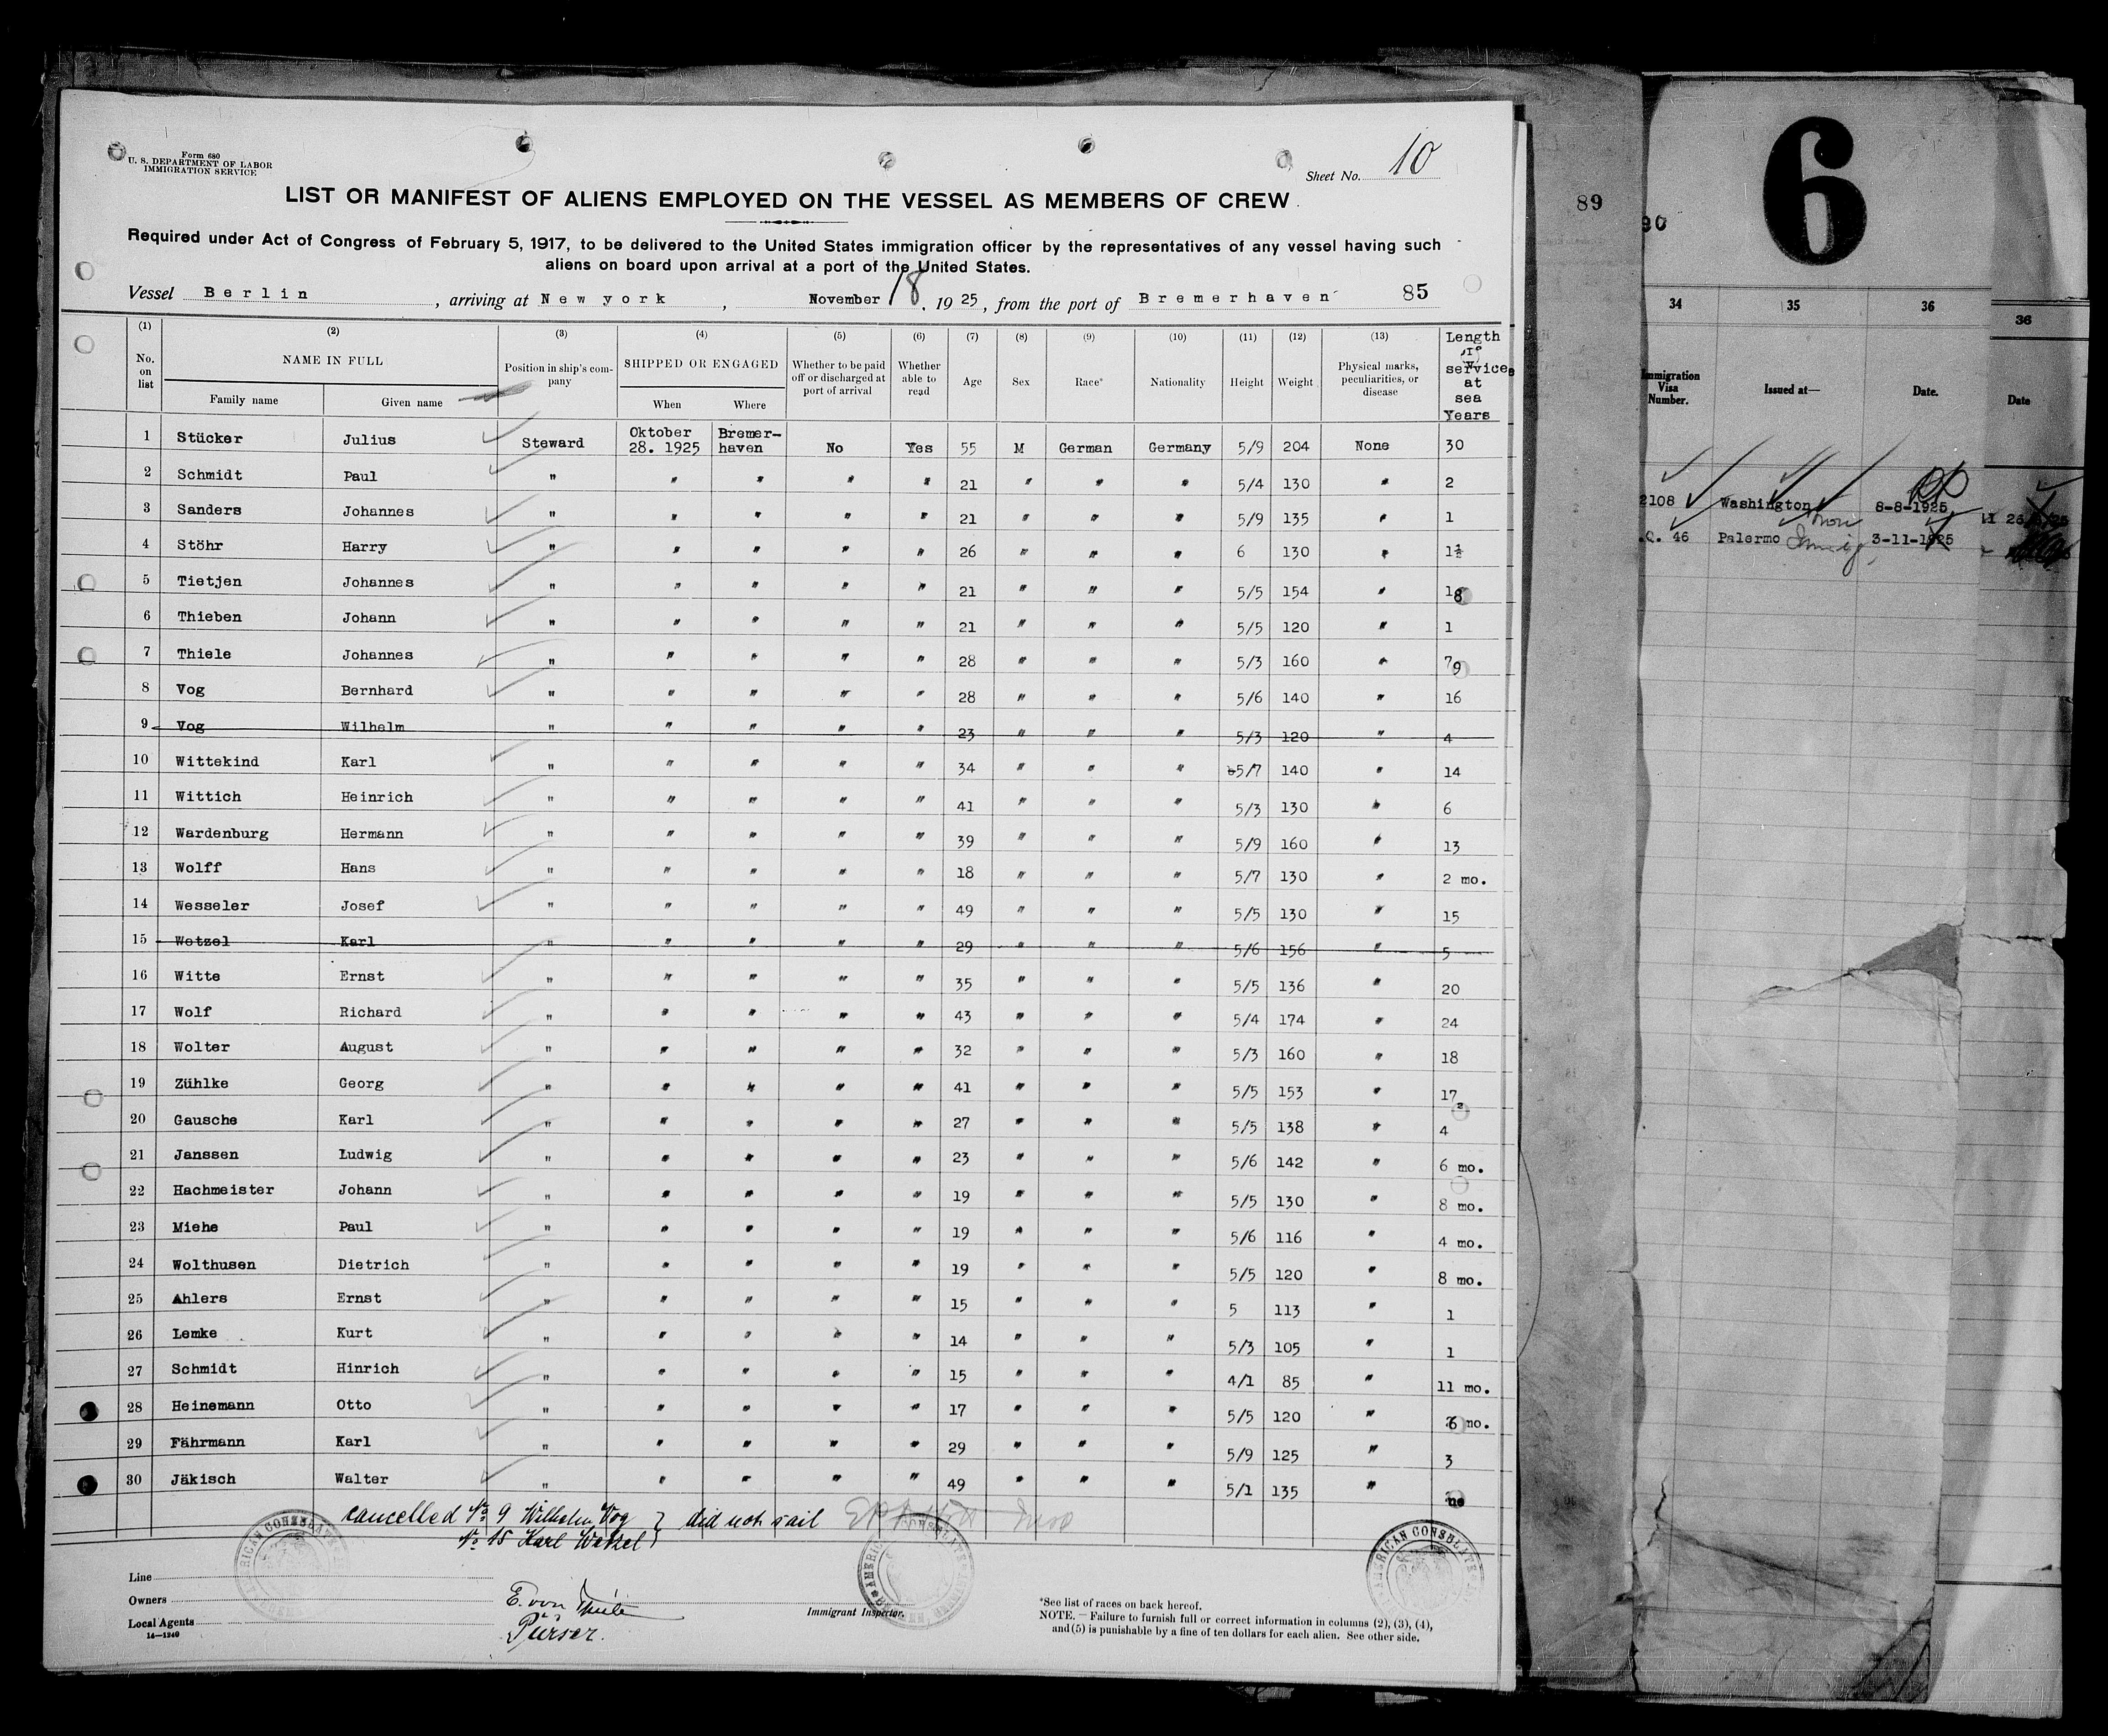 Form 680
U. S. DEPARTMENT OF LABOR
IMMIGRATION SERVICE
Sheet No. 10
LIST OR MANIFEST OF ALIENS EMPLOYED ON THE VESSEL AS MEMBERS OF CREW
Required under Act of Congress of February 5, 1917, to be delivered to the United States immigration officer by the representatives of any vessel having such
aliens on board upon arrival at a port of the United States.
Vessel Berlin, arriving at New york, November 18, 1925, from the port of Bremerhaven 85
(1) (2) (3) (4) (5) (6) (7) (8) (9) (10) (11) (12) (13) Length of service at sea Years
No. on list NAME IN FULL Position in ship's company SHIPPED OR ENGAGED Whether to be paid off or discharged at port of arrival Whether able to read Age Sex Race* Nationality Height Weight Physical marks, peculiarities, or disease
Family name Given name When Where
1 Stücker Julius Steward Oktober 28. 1925 Bremerhaven No Yes 55 M German Germany 5/9 204 None 30
2 Schmidt Paul " " " " " 21 " " " 5/4 130 " 2
3 Sanders Johannes " " " " " 21 " " " 5/9 135 " 1
4 Stöhr Harry " " " " " 26 " " " 6 130 " 1½
5 Tietjen Johannes " " " " " 21 " " " 5/5 154 " 18
6 Thieben Johann " " " " " 21 " " " 5/5 120 " 1
7 Thiele Johannes " " " " " 28 " " " 5/3 160 " 79
8 Vog Bernhard " " " " " 28 " " " 5/6 140 " 16
9 Vog Wilhelm " " " " " 23 " " " 5/3 120 " 4
10 Wittekind Karl " " " " " 34 " " " 5/7 140 " 14
11 Wittich Heinrich " " " " " 41 " " " 5/3 130 " 6
12 Wardenburg Hermann " " " " " 39 " " " 5/9 160 " 13
13 Wolff Hans " " " " " 18 " " " 5/7 130 " 2 mo.
14 Wesseler Josef " " " " " 49 " " " 5/5 130 " 15
15 Wetzel Karl " " " " " 29 " " " 5/6 156 " 5
16 Witte Ernst " " " " " 35 " " " 5/5 136 " 20
17 Wolf Richard " " " " " 43 " " " 5/4 174 " 24
18 Wolter August " " " " " 32 " " " 5/3 160 " 18
19 Zühlke Georg " " " " " 41 " " " 5/5 153 " 17
20 Gausche Karl " " " " " 27 " " " 5/5 138 " 4
21 Janssen Ludwig " " " " " 23 " " " 5/6 142 " 6 mo.
22 Hachmeister Johann " " " " " 19 " " " 5/5 130 " 8 mo.
23 Miehe Paul " " " " " 19 " " " 5/6 116 " 4 mo.
24 Wolthusen Dietrich " " " " " 19 " " " 5/5 120 " 8 mo.
25 Ahlers Ernst " " " " " 15 " " " 5 113 " 1
26 Lemke Kurt " " " " " 14 " " " 5/3 105 " 1
27 Schmidt Hinrich " " " " " 15 " " " 4/1 85 " 11 mo.
28 Heinemann Otto " " " " " 17 " " " 5/5 120 " mo.
29 Fährmann Karl " " " " " 29 " " " 5/9 125 " 3
30 Jäkisch Walter " " " " " 49 " " " 5/1 135 "
cancelled No 9 Wilhelm Vog } did not sail
No 15 Karl Wetzel
AMERICAN CONSULATE
Line
Owners
Local Agents
14—1240
E. von
Purser.
Immigrant Inspector.
*See list of races on back hereof.
NOTE. — Failure to furnish full or correct information in columns (2), (3), (4),
and (5) is punishable by a fine of ten dollars for each alien. See other side.
89
90
6
34 35 36 36
Immigration Visa Number. Issued at— Date. Date
2108 Washington 8-8-1925
46 Palermo 3-11-1925